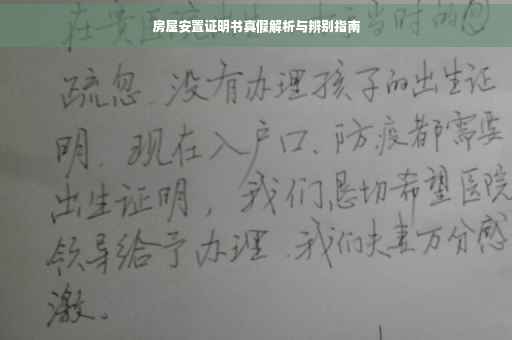 房屋安置证明书真假解析与辨别指南
在 当时的
疏忽、没有办理孩子的出生证
明、现在入户口、防疫都需要
出生证明，我们恳切希望医院
领导给予办理、我们夫妻万分感
激。